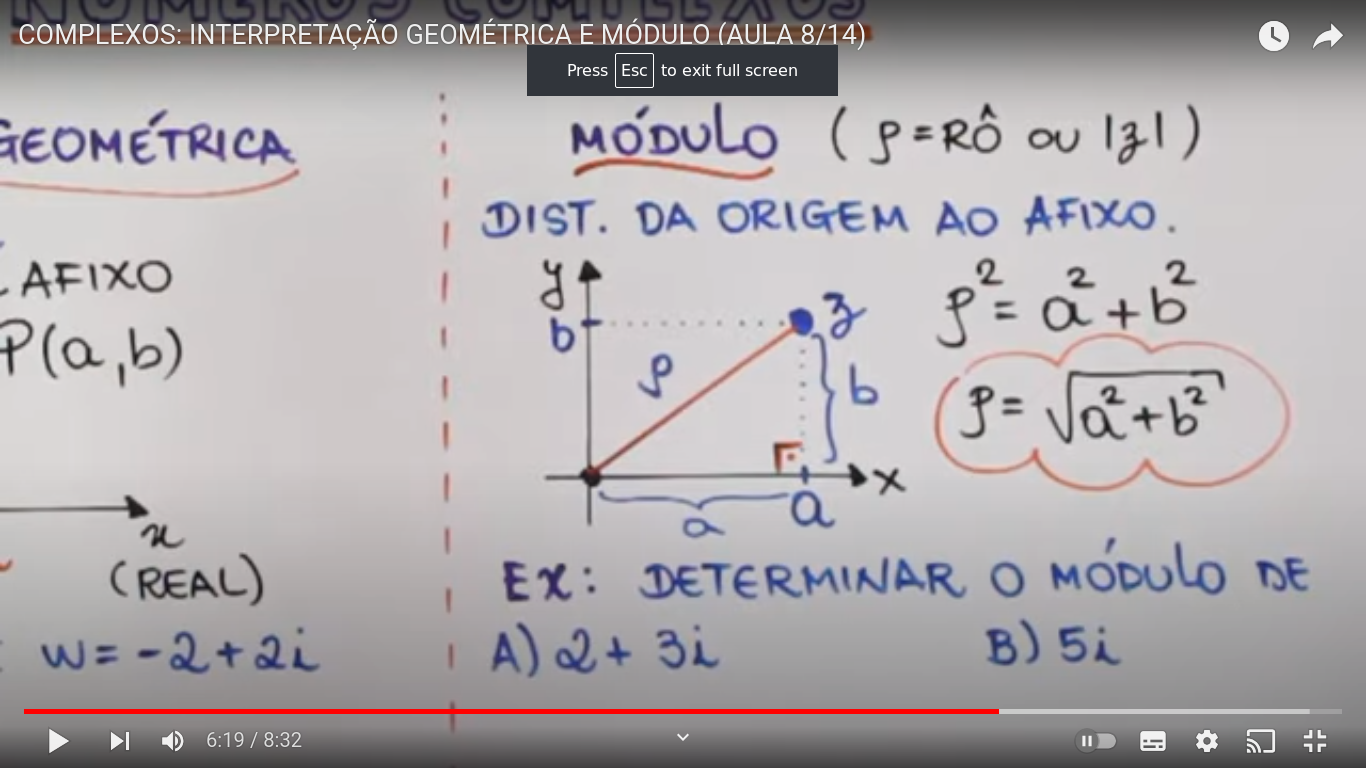 NÚMEROS COMPLEXOS
COMPLEXOS: INTERPRETAÇÃO GEOMÉTRICA E MÓDULO (AULA 8/14)
Press Esc to exit full screen
GEOMÉTRICA
AFIXO
P(a,b)
x
(REAL)
w = -2 + 2i
MÓDULO (ρ = RÔ OU |z|)
DIST. DA ORIGEM AO AFIXO.
y
b
z
ρ
b
x
a
a
ρ² = a² + b²
ρ = √a² + b²
EX: DETERMINAR O MÓDULO DE
A) 2 + 3i B) 5i
6:19 / 8:32